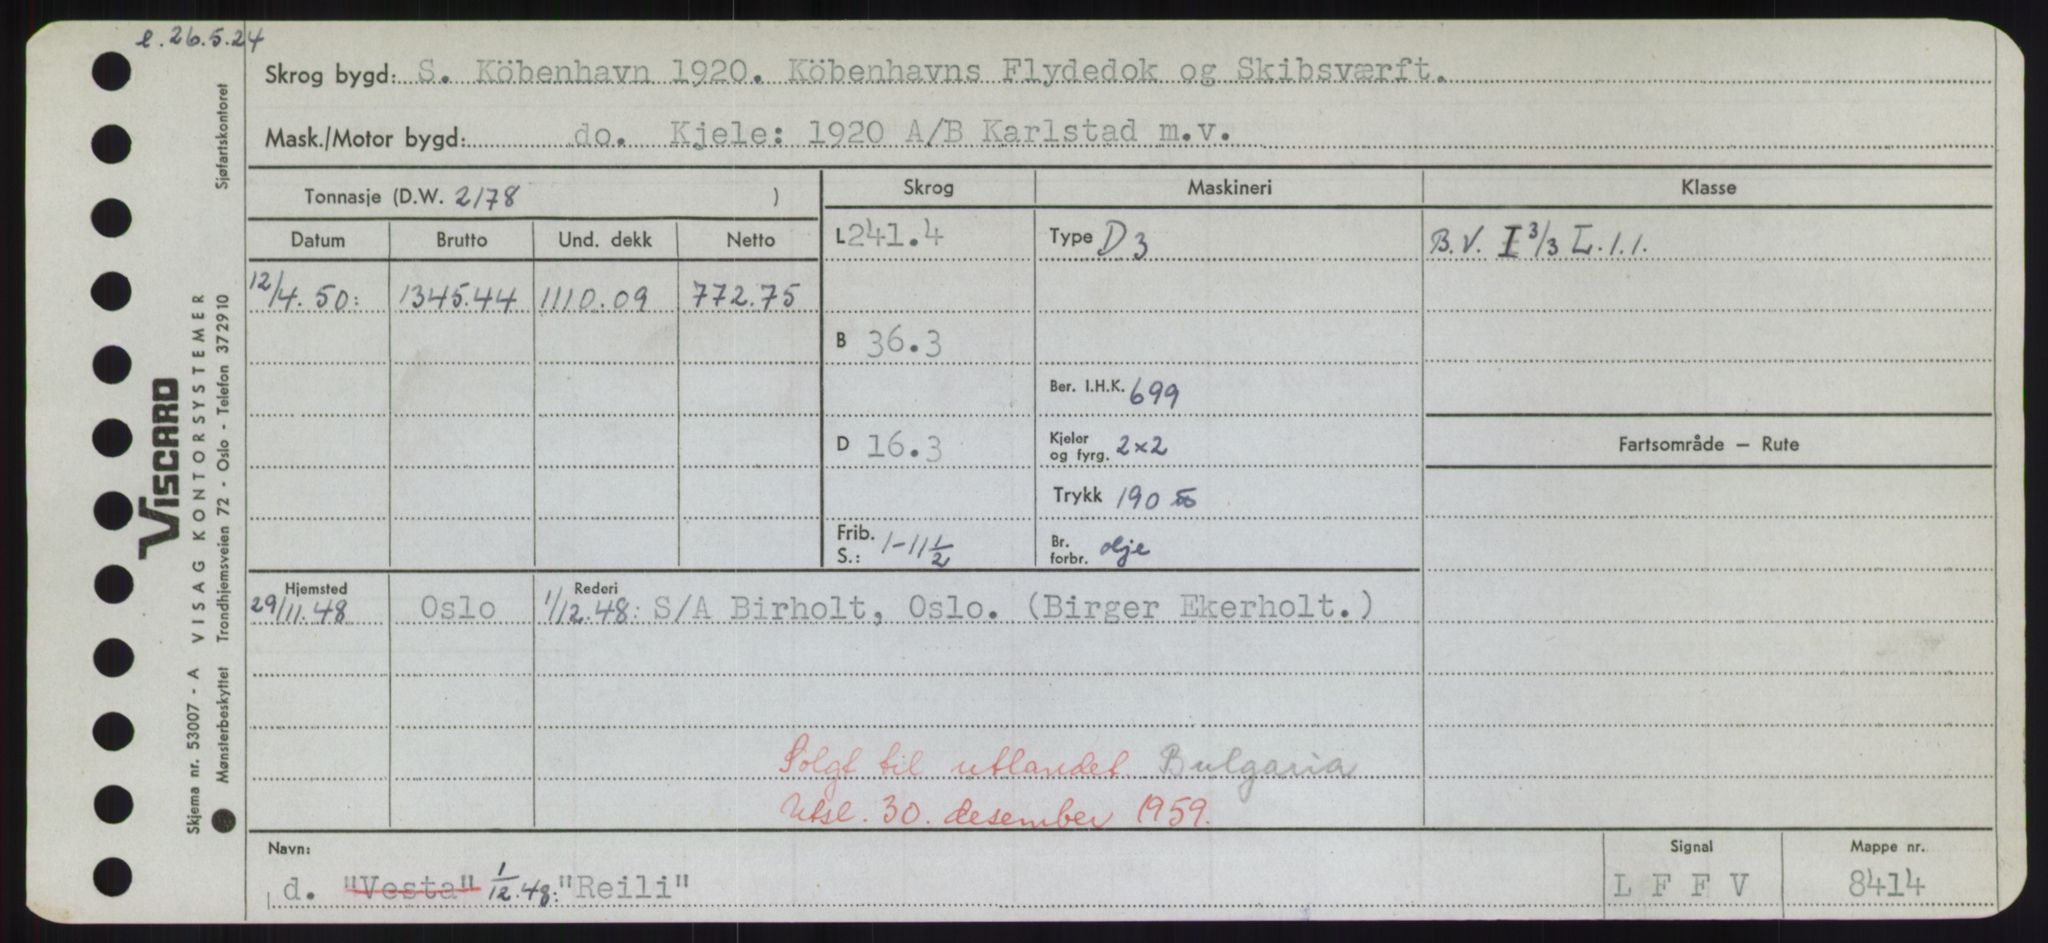 e. 26.5.24
Skrog bygd: S. Köbenhavn 1920. Köbenhavns Flydedok og Skibsværft.
Mask./Motor bygd: do. Kjele: 1920 A/B Karlstad m.v.
Tonnasje (D.W. 2178 )
Skrog Maskineri Klasse
Datum Brutto Und. dekk Netto
L 241.4 Type D 3 B.V. I 3/3 L.1.1.
12/4.50: 1345.44 1110.09 772.75
B 36.3
Ber. I.H.K. 699
D 16.3 Kjeler og fyrg. 2x2 Fartsområde — Rute
Trykk 190
Frib. S.: 1-11 1/2 Br. forbr. olje
Hjemsted Rederi
29/11.48 Oslo 1/12.48: S/A Birholt, Oslo. (Birger Ekerholt.)
Solgt til utlandet Bulgaria
Utsl. 30. desember 1959.
Navn: Signal Mappe nr.
d. "Vesta" 1/12.48: "Reili" L F F V 8414
Skjema nr. 53007 - A VISAG KONTORSYSTEMER
Mønsterbeskyttet Trondhjemsveien 72 - Oslo - Telefon 37 29 10 Sjøfartskontoret
VISCARD